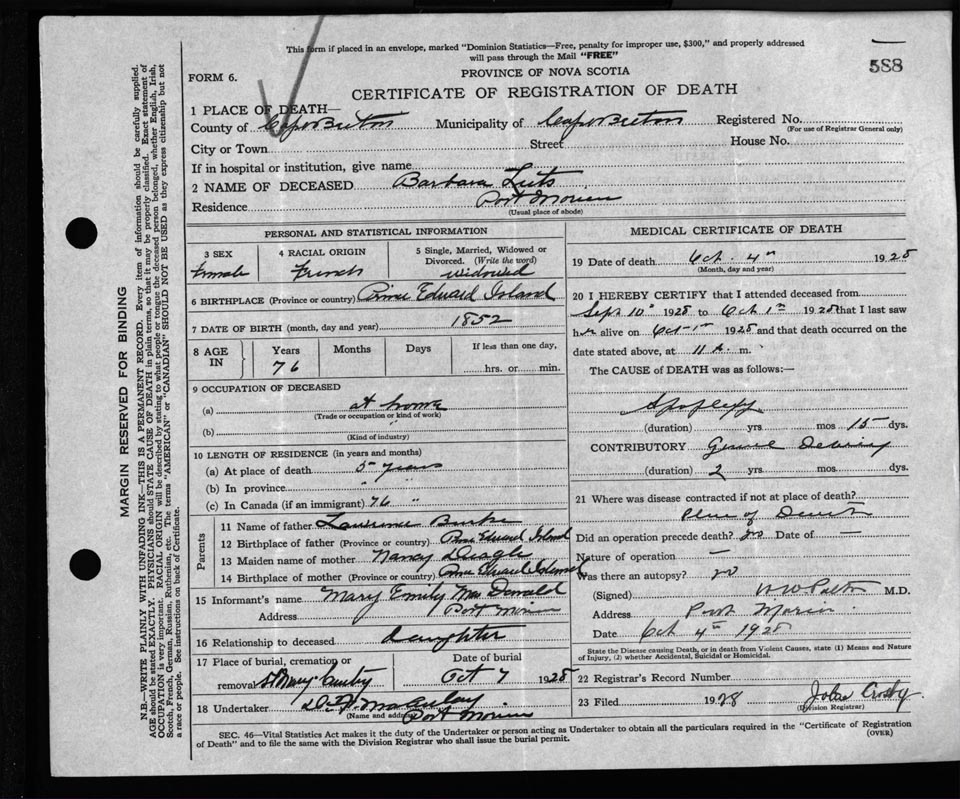 This form if placed in an envelope, marked "Dominion Statistics—Free, penalty for improper use, $300," and properly addressed
will pass through the Mail "FREE"
588
FORM 6.
PROVINCE OF NOVA SCOTIA
CERTIFICATE OF REGISTRATION OF DEATH
1 PLACE OF DEATH—
County of Cape Breton Municipality of Cape Breton Registered No.
(For use of Registrar General only)
City or Town Street House No.
If in hospital or institution, give name
2 NAME OF DECEASED Barbara
Residence Port Morien
(Usual place of abode)
PERSONAL AND STATISTICAL INFORMATION
3 SEX 4 RACIAL ORIGIN 5 Single, Married, Widowed or
Divorced. (Write the word)
Female French widowed
6 BIRTHPLACE (Province or country) Prince Edward Island
7 DATE OF BIRTH (month, day and year) 1852
8 AGE IN Years Months Days If less than one day,
76 hrs. or min.
9 OCCUPATION OF DECEASED
(a) at home
(Trade or occupation or kind of work)
(b)
(Kind of industry)
10 LENGTH OF RESIDENCE (in years and months)
(a) At place of death 5 years
(b) In province " "
(c) In Canada (if an immigrant) 76 "
Parents
11 Name of father Lawrence
12 Birthplace of father (Province or country) Prince Edward Island
13 Maiden name of mother Nancy
14 Birthplace of mother (Province or country) Prince Edward Island
15 Informant's name Mary Emily MacDonald
Address Port Morien
16 Relationship to deceased daughter
17 Place of burial, cremation or Date of burial
removal St Mary's Oct 7 1928
18 Undertaker
(Name and address) Port Morien
MEDICAL CERTIFICATE OF DEATH
19 Date of death Oct. 4th 1928
(Month, day and year)
20 I HEREBY CERTIFY that I attended deceased from
Sept 10" 1928 to Oct 1st 1928 that I last saw
her alive on Oct 1st 1928 and that death occurred on the
date stated above, at 11 A. m.
The CAUSE OF DEATH was as follows:—
Apoplexy
(duration) yrs mos 15 dys.
CONTRIBUTORY General
(duration) 2 yrs mos. dys.
21 Where was disease contracted if not at place of death?
Place of Death
Did an operation precede death? no Date of —
Nature of operation —
Was there an autopsy? no
(Signed) M.D.
Address Port Morien
Date Oct 4th 1928
State the Disease causing Death, or in death from Violent Causes, state (1) Means and Nature
of Injury, (2) whether Accidental, Suicidal or Homicidal.
22 Registrar's Record Number
23 Filed 1928 Crosby
(Division Registrar)
SEC. 46—Vital Statistics Act makes it the duty of the Undertaker or person acting as Undertaker to obtain all the particulars required in the "Certificate of Registration
of Death" and to file the same with the Division Registrar who shall issue the burial permit.
(OVER)
MARGIN RESERVED FOR BINDING
N.B.—WRITE PLAINLY WITH UNFADING INK—THIS IS A PERMANENT RECORD. Every item of information should be carefully supplied.
AGE should be stated EXACTLY. PHYSICIANS should STATE CAUSE OF DEATH in plain terms, so that it may be properly classified. Exact statement of
OCCUPATION is very important. RACIAL ORIGIN will be described by stating to what people or tongue the deceased person belonged, whether English, Irish,
Scotch, French, German, Russian, Ruthenian, etc. The terms "AMERICAN" or "CANADIAN" SHOULD NOT BE USED as they express citizenship but not
a race or people. See instructions on back of Certificate.